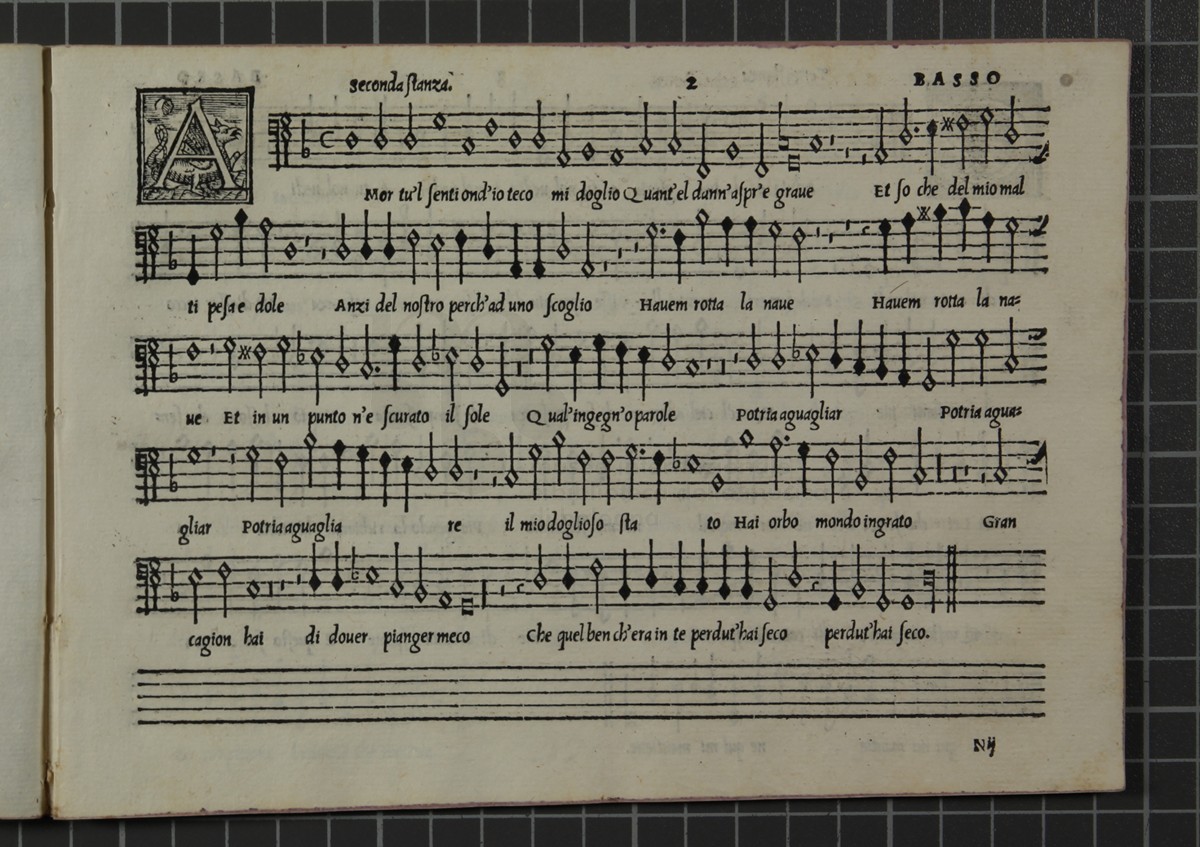 Seconda stanza.
2
BASSO
A Mor tu'l senti ond'io teco mi doglio Quant'el dann'aspr'e graue Et so che del mio mal
ti pesa e dole Anzi del nostro perch'ad uno scoglio Hauem rotta la naue Hauem rotta la na=
ue Et in un punto n'e scurato il sole Qual'ingegn'o parole Potria aguagliar Potria agua=
gliar Potria aguaglia re il mio doglioso sta to Hai orbo mondo ingrato Gran
cagion hai di douer pianger meco Che quel ben ch'era in te perdut'hai seco perdut'hai seco.
Nij